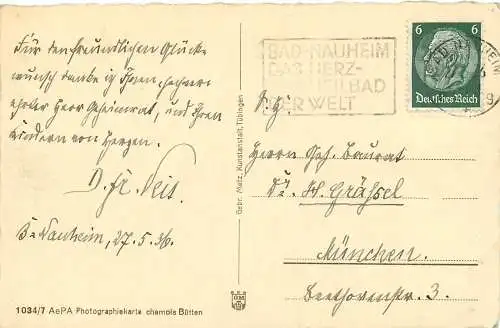 Für den freundlichen Glück-
wunsch danke ich Ihnen, sehr
Herr Geheimrat, und Ihren
Kindern von Herzen.
B. Nauheim, 27.5.36.
1034/7 AePA Photographiekarte chamois Bütten
Gebr. Metz, Kunstanstalt, Tübingen
BAD-NAUHEIM
DAS HERZ-
BAD
DER WELT
6 6
Deutsches Reich
S. H.
Herrn Geh. Baurat
Dr. H. Gräßel
München.
Beethovenstr. 3.